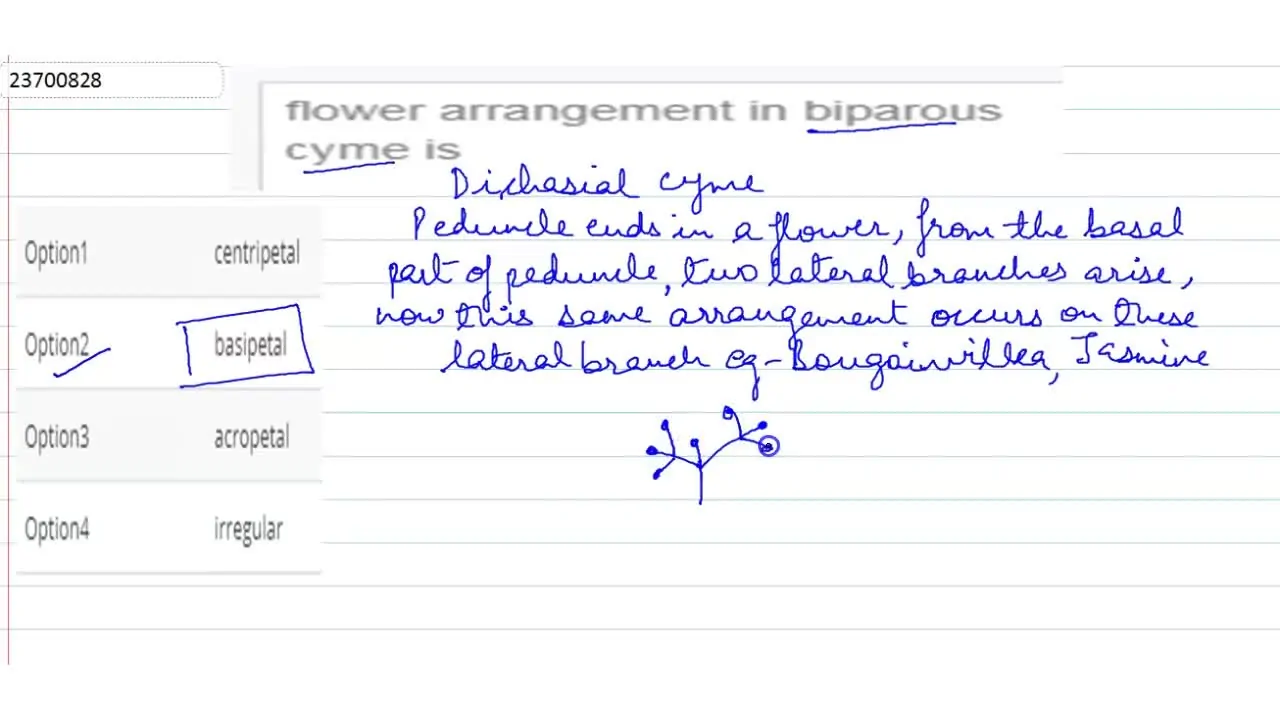 23700828
flower arrangement in biparous
cyme is
Dichasial cyme
Peduncle ends in a flower, from the basal
part of peduncle, two lateral branches arise,
now this same arrangement occurs on these
lateral branch eg - Bougainvillea, Jasmine
Option1 centripetal
Option2 basipetal
Option3 acropetal
Option4 irregular